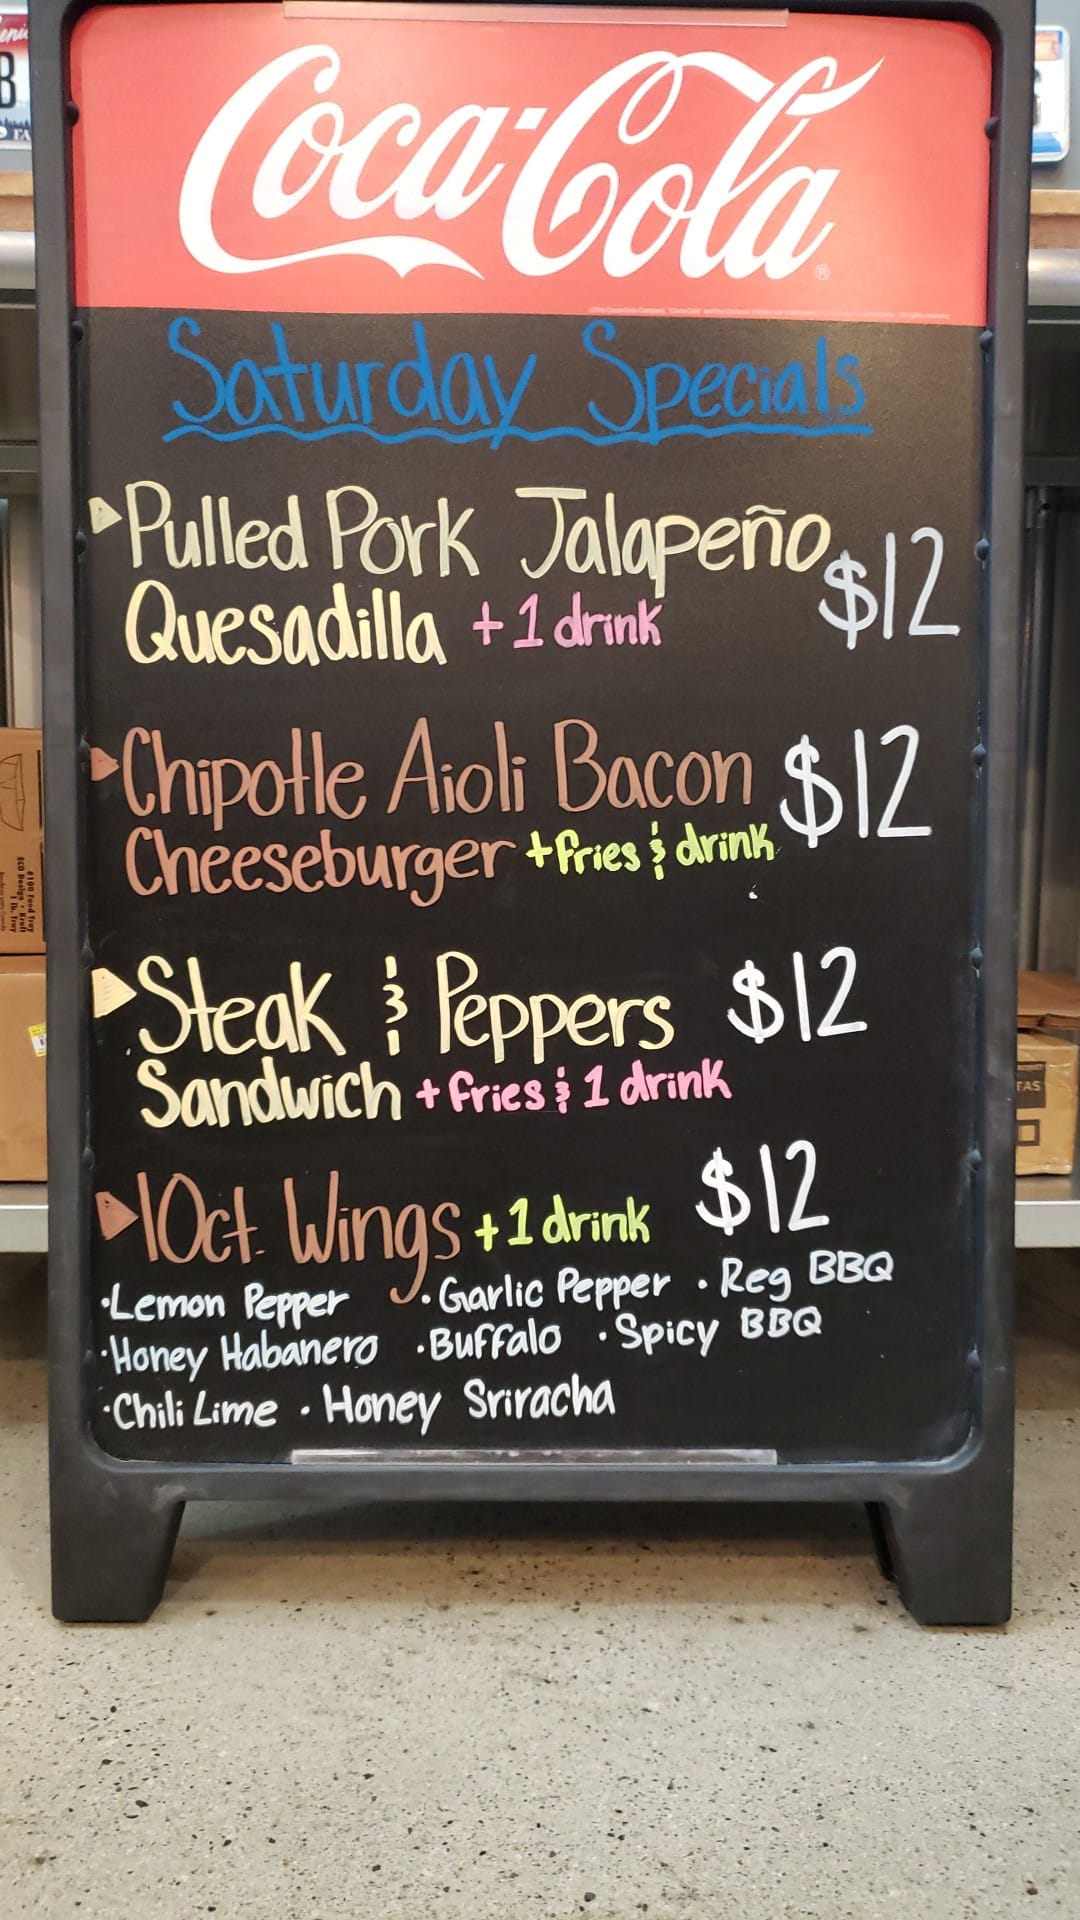 Coca-Cola
®
Saturday Specials
Pulled Pork Jalapeño
Quesadilla + 1 drink $12
Chipotle Aioli Bacon $12
Cheeseburger + fries & drink
Steak & Peppers $12
Sandwich + fries & 1 drink
10ct. Wings + 1 drink $12
·Lemon Pepper ·Garlic Pepper ·Reg BBQ
·Honey Habanero ·Buffalo ·Spicy BBQ
·Chili Lime ·Honey Sriracha
#100 Food Tray
ECO Design - Kraft
1 lb. Tray
TAS
B